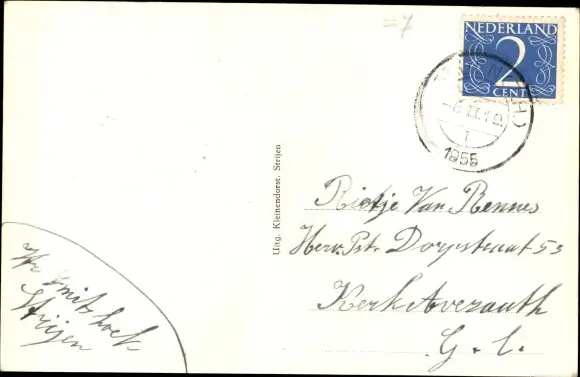 =7
NEDERLAND
2
CENT
1955
Uitg. Kleinendorst, Strijen
Rietje Van Rennes
Herv. Pst. Dorpstraat 53
Kerk Averzaath
G. l.
Smitshoek
Strijen